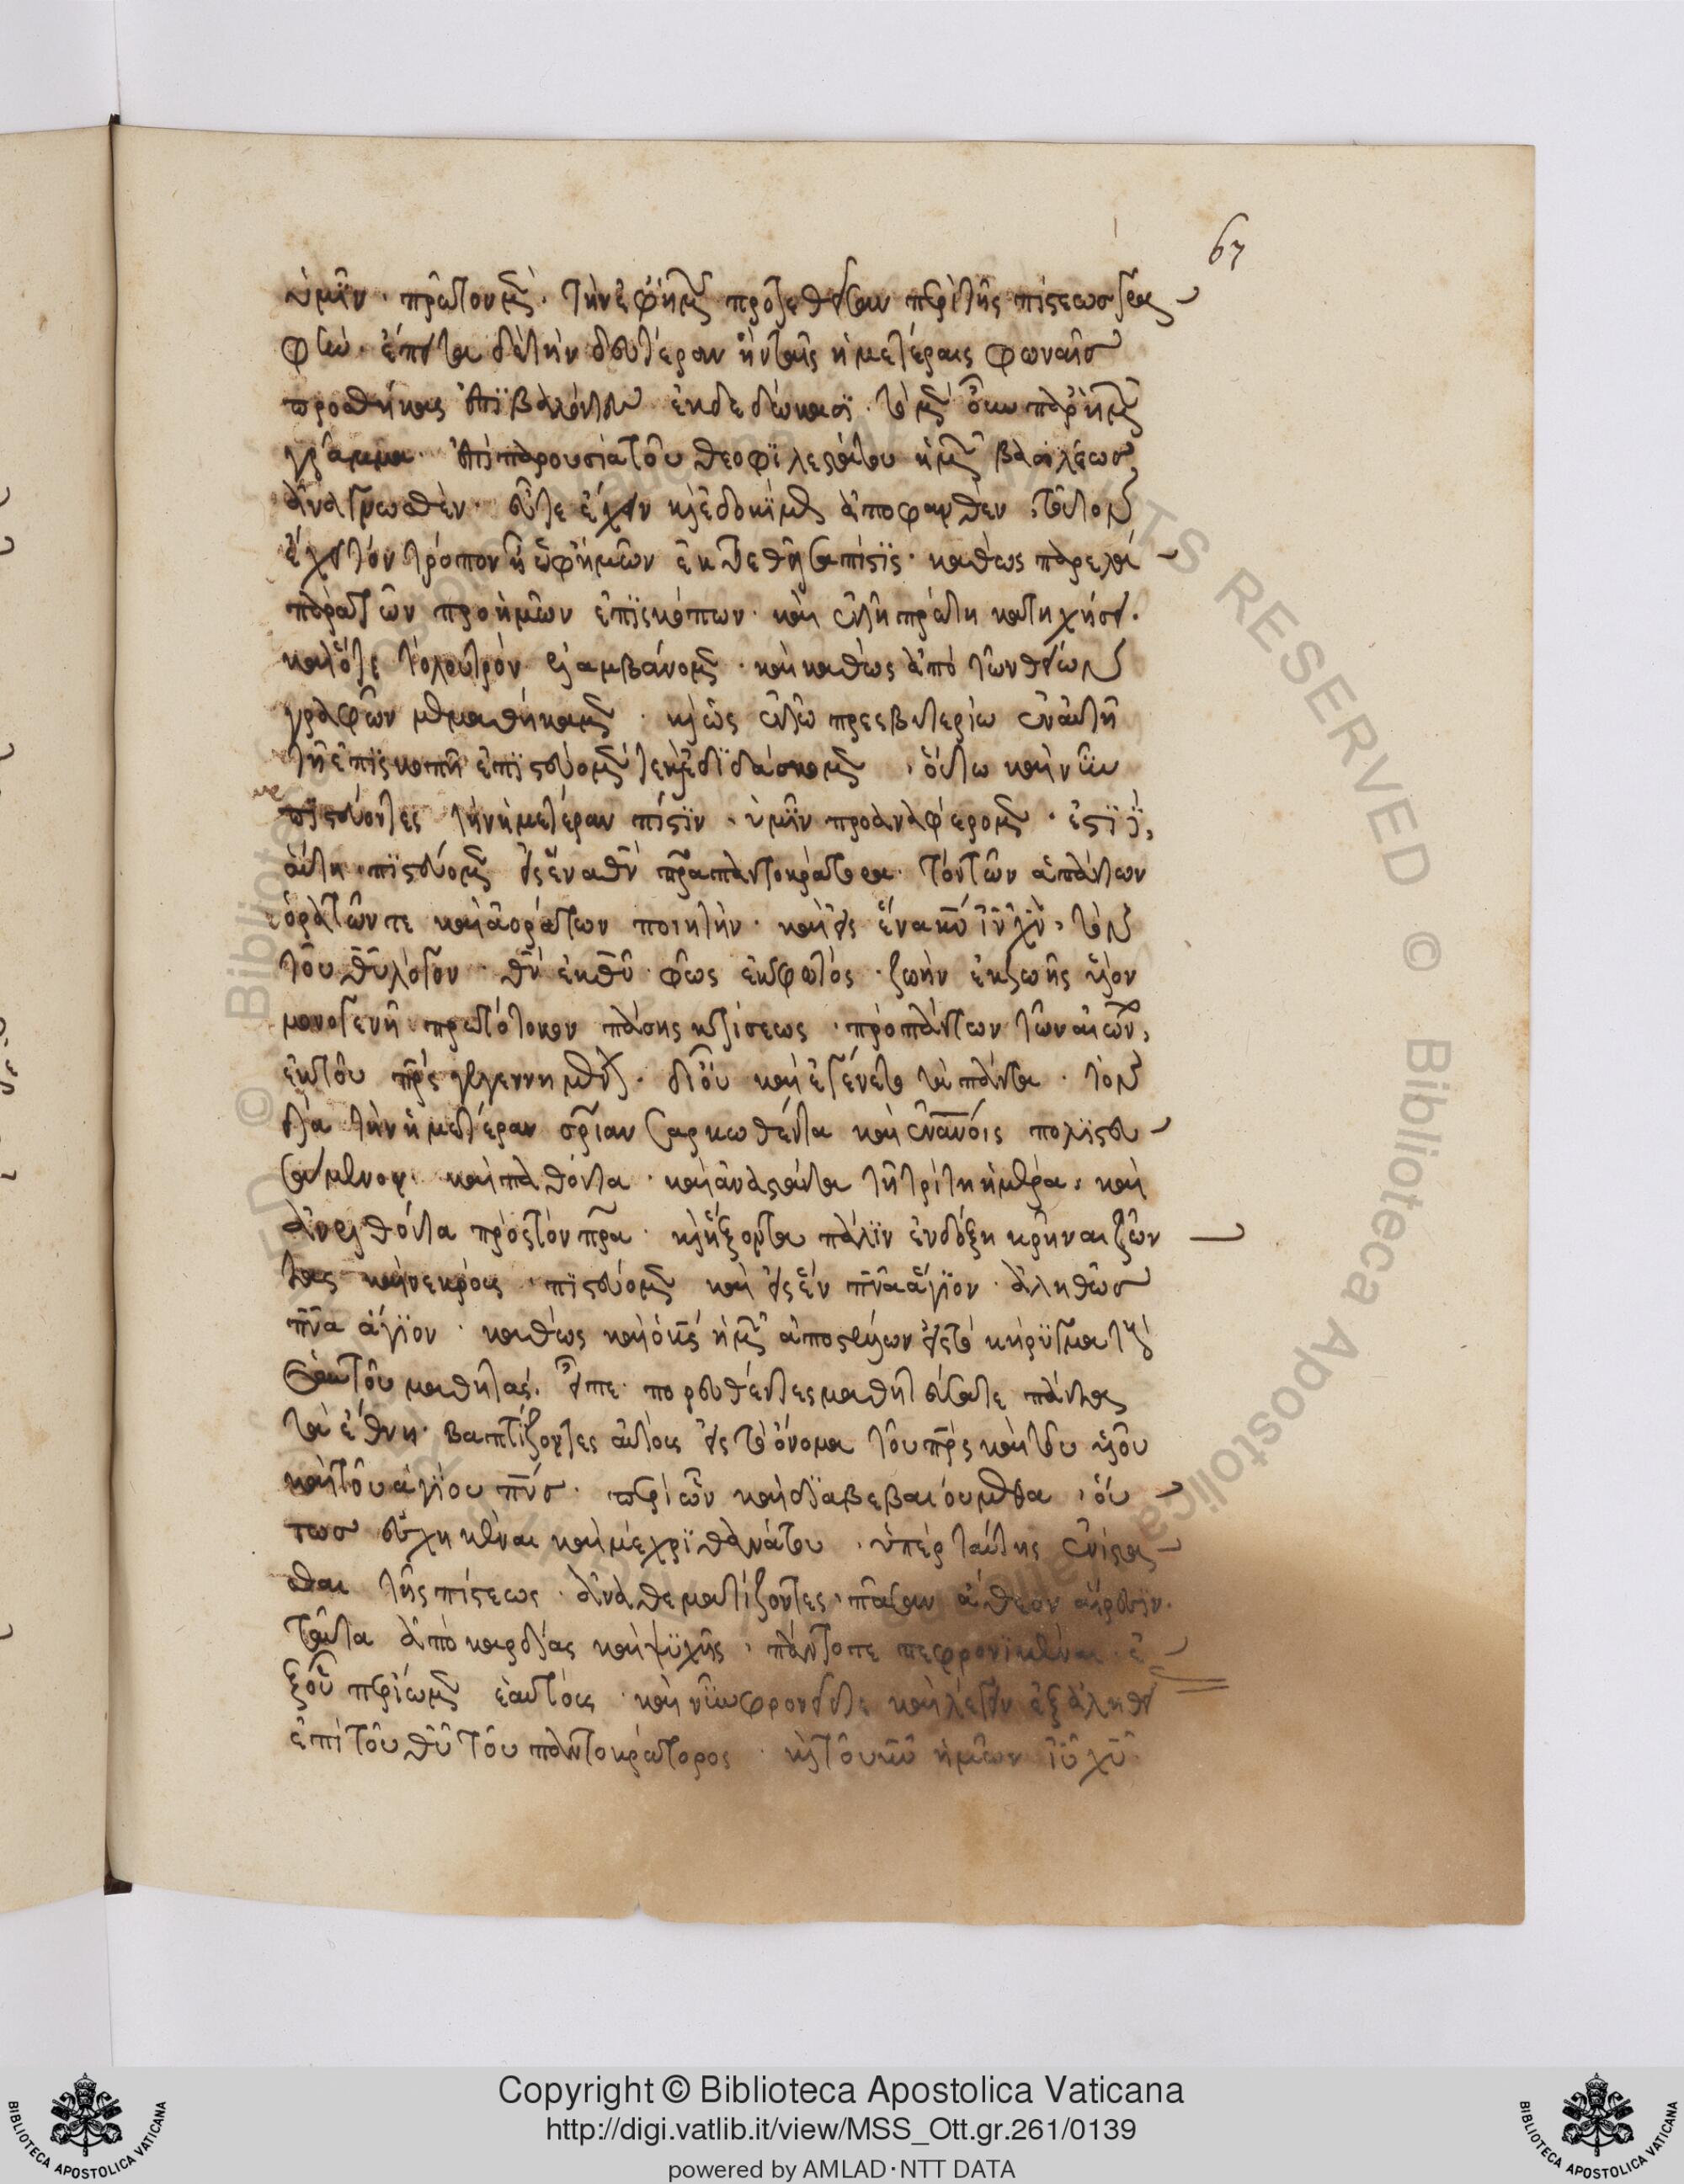 67
ὑμῖν · πρῶτον μ(ὲν) · τὴν ἐφ' ἡμ(ῶν) προτεθεῖσαν περὶ τῆς πίστεως γρα
φὴν · ἔπειτα δὲ τὴν δευτέραν ἣν ταῖς ἡμετέραις φωναῖσ
προσθήκας ἐπϊβαλόντες ἐκδεδώκασϊ · τὸ μ(ὲν) οὖν παρ' ἡμ(ῶν)
γράμμα · ἐπὶ παρουσία τοῦ θεοφϊλεστάτου ἡμ(ῶν) βασιλέωσ
ἀναγνωσθὲν · εὖτε ἔχειν κ(αὶ) εδοκίμως ἀποφανθὲν · τοῦτον
ἔχει τὸν τρόπον ἡ ὑφ' ἡμῶν ἐκτεθεῖσα πίστϊς · καθὼς παρελά
παρὰ τῶν προ ἡμῶν ἐπϊσκόπων · καὶ ἐν τῆ πρώτη κατηχήσει ·
καὶ ὅτε τὸ λουτρὸν ἐλαμβάνομ(εν) · καὶ καθὼς ἀπὸ τῶν θείων
γραφῶν μεμαθήκαμ(εν) · κ(αὶ) ὡς ἐν τῶ πρεσβυτερίω ἐν αὐτῆ
τῆ ἐπϊσκοπῆ ἐπϊστεύομ(έν) τε κ(αὶ) ἐδϊδάσκομ(εν) · οὕτω καὶ νῦν
πϊστεύοντες τὴν ἡμετέραν πίστϊν · ὑμῖν προαναφέρομ(εν) · ἔστϊ δ(ὲ)
αὕτη · πϊστεύομ(εν) εἰς ἕνα θ̅ν̅ π̅ρ̅α̅ παντοκράτορα · τὸν τῶν ἁπάντων
ὁρατῶν τε καὶ ἀοράτων ποιητὴν · καὶ εἰς ἕνα κ̅ν̅ ι̅ν̅ χ̅ν̅ · τὸν
τοῦ θ̅υ̅ λόγον · θ̅ν̅ ἐκ θ̅υ̅ · φῶς ἐκ φωτός · ζωὴν ἐκ ζωῆς υἱὸν
μονογενῆ πρωτότοκον πάσης κτίσεως · πρὸ πάντων τῶν αἰών(ων)
ἐκ τοῦ π̅ρ̅ς̅ γεγεννημένον · δι' οὗ καὶ ἐγένετο τὰ πάντα · τὸν
διὰ τὴν ἡμετέραν σ̅ρ̅ίαν σαρκωθέντα καὶ ἐν ἀ̅ν̅οις πολϊτευ
σάμενον · καὶ παθόντα · καὶ ἀναστάντα τῆ τρίτη ἡμέρα · καὶ
ἀνελθόντα πρὸς τὸν π̅ρ̅α̅ · κ(αὶ) ἥξοντα πάλϊν ἐν δόξη κρῆναι ζῶν
τας καὶ νεκρούς · πϊστεύομ(εν) καὶ εἰς ἓν π̅ν̅α̅ ἅγϊον · ἀληθῶσ
π̅ν̅α̅ ἅγϊον · καθὼς καὶ ὁ κ̅ς̅ ἡμ(ῶν) ἀποστέλλων εἰς τὸ κήρϋγμα τοὺς
ἑαυτοῦ μαθητάς · εἶπε · πορευθέντες μαθητεύσατε πάντα
τὰ ἔθνη · βαπτίζοντες αὐτοὺς εἰς τὸ ὄνομα τοῦ π̅ρ̅ς̅ καὶ τοῦ υἱοῦ
καὶ τοῦ ἁγίου π̅ν̅σ̅ · περὶ ὧν καὶ δϊαβεβαιούμεθα · οὕ
τωσ εὔχη κέναι καὶ μέχρϊ θανάτου · ὑπὲρ ταύτης ἐνίστα
σθαι τῆς πίστεως · ἀναθεματίζοντες · πᾶσαν ἄθεον αἵρεσϊν ·
ταῦτα ἀπὸ καρδίας καὶ ψϋχῆς · πάντοτε πεφρονϊκέναι · ἐ
ξ οὗ περ ἴσμ(εν) ἑαυτούς · καὶ νῦν φρονεῖτε καὶ λέγειν ἐξ ἀληθεί
ἐπὶ τοῦ θ̅υ̅ τοῦ παντοκράτορος · κ(αὶ) τοῦ κ̅υ̅ ἡμῶν ι̅υ̅ χ̅υ̅
Copyright © Biblioteca Apostolica Vaticana
http://digi.vatlib.it/view/MSS_Ott.gr.261/0139
powered by AMLAD·NTT DATA
BIBLIOTECA APOSTOLICA VATICANA
BIBLIOTECA APOSTOLICA VATICANA